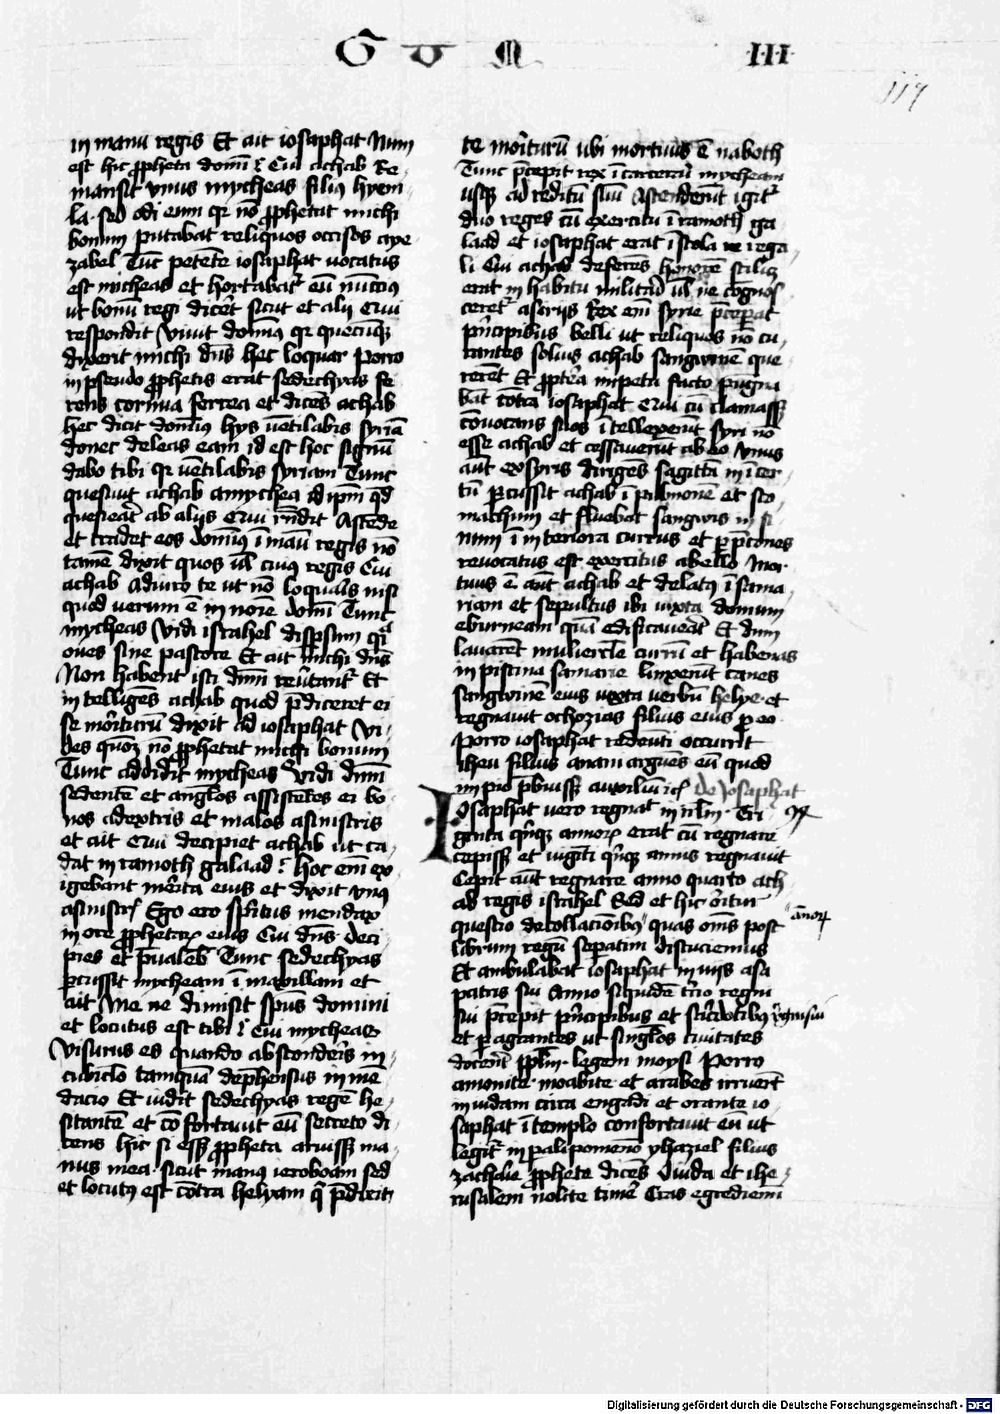 G V M III
119
in manu regis Et ait iosaphat Num
est hic ꝓpheta domĩ ? Cui achab Re
mansit vnus mycheas filiꝰ hyem
la · sed odi eum qr nõ ꝓphetat michi
bonum putabat reliquos occisos a ye
zabel Tũc petẽte iosaphat uocatus
est micheas et hortabatʳ eũ nũctiꝰ
ut bonũ regi dicet sicut et alij Cui
respondit Viuit dominꝰ qr quecũqꝫ
dixerit michi dñs hec loquar Porro
in pseudo ꝓphetis erat sedechyas fe
rens cornua ferrea et dicẽs achab
hec dicit dominꝰ hys uẽtilabis syriã
donec deleas eam id est hoc signũ
dabo tibi qr uẽtilabis syriam Tunc
quesiuit achab a mychea id ipm̃ qd
quesierat ab alijs Cui rñdit Ascede
et tradet eos dominꝰ ĩ manu regis nõ
tamẽ dixit quos ul̃ cuiꝰ regis Cui
achab Adiuro te ut nõ loquaris nisi
quod uerum ẽ in noĩe domĩ Tunc
mycheas Vidi israhel dispsum qͣsi
oues sine pastore Et ait michi dñs
Non habent isti dñm reũtantʳ Et
intelligẽs achab quod p̃diceret ei
se moriturũ dixit ad iosaphat Vi
des quoꝫ nõ ꝓphetat michi bonum
Tunc addidit mycheas Vidi dñm
sedentẽ et angl̃os assistẽtes ei bo
nos a dextris et malos a sinistris
et ait Cui decipiet achab ut ca
dat in ramoth galaad ? hoc em̃ ex
igebant merita eius et dixit vnꝰ
a sinistris Ego ero sp̃ritus mendax
in ore ꝓphetaꝝ eius Cui dñs deci
pies et p̃ualeb̃ Tunc sedechyas
ꝑcussit mycheam ĩ maxillam et
ait Me ne dimisit sp̃us domini
et locutus est tibi ? Cui mycheas
Visurus es quando absconderis in
cubiclo tamquã dep̃hensus in mẽ
dacio Et uidit sedechyas regẽ he
sitantẽ et cõfortauit eũ secreto di
cens hic si essꝫ ꝓpheta aruissꝫ ma
nus mea · sicut manꝰ ieroboam sed
et locutꝰ est cõtra helyam q̃ p̃dixit
te moriturũ ubi mortuus ẽ naboth
Tunc p̃cepit rex ĩ carcerẽ mycheam
usqꝫ ad reditũ suũ Ascenderũt igitʳ
duo reges cũ exercitu ĩ ramoth ga
laad et iosaphat erat ĩ stola re rega
li Cui achab deferẽs honorẽ scilicꝫ
erat in habitu militari ul̃ ne cognos
ceretʳ a sirijs Rex em̃ syrie p̃ceperat
p̃ncipibus belli ut reliquos nõ cu
rantes solius achab sangwinẽ que
rerẽt Et ꝓpt̃ea impetu facto pugna
bãt cõtra iosaphat Cui cũ clamassꝫ
cõuocans suos ĩtellexerũt syri nõ
esse achab et cessauerũt ab eo Vnus
aũt ex syris dirigẽs sagittã in icer
tũ ꝑcussit achab ĩ pulmonẽ et sto
machum et fluebat sangwis in si
num ĩ interiora currus et p̃p̃cones
reuocatus est exercitus a bello Mor
tuus ẽ aũt achab et delatꝰ ĩ sama
riam et sepultus ibi iuxta domum
eburneam quã edificauerat Et dum
lauarẽt muliercl̃e currũ et habenas
in piscina samarie linxerũt canes
sangwinẽ eius iuxta uerbũ helye · et
regnauit ochozias filius eius ꝑ eo
Porro iosaphat redeũti occurrit
iheu filius anani arguẽs eũ quod
impio p̃buissꝫ auxiliũ De Iosaphat
Iosaphat uero regnat in irl̃m Tri
ginta q̃nqꝫ annoꝝ erat cũ regnare
cepissꝫ et uigĩti q̃nqꝫ annis regnauit
Cepit aũt regnare anno quarto ach
ab regis israhel Sed et hic oritur
questio de collationibꝰ annoꝝ quas om̃s post
librum regũ sepatim discuciemus
Et ambulabat iosaphat in uijs asa
patris sui Anno siquidẽ t̃cio regni
sui p̃cepit p̃ncipibus et sac̃dotibꝰ
et ꝑagrantes ut singl̃os ciuitates
docerẽt ppl̃m · legem moysi Porro
amonite · moabite et arabes irruerũt
in iudam circa engadi et orante io
saphat ĩ templo confortauit eũ ut
legitʳ in palipomenõ yhaziel filius
zacharie ꝓphete dicẽs O iuda et ihe
rusalem nolite timere Cras egredimĩ
Digitalisierung gefördert durch die Deutsche Forschungsgemeinschaft - DFG